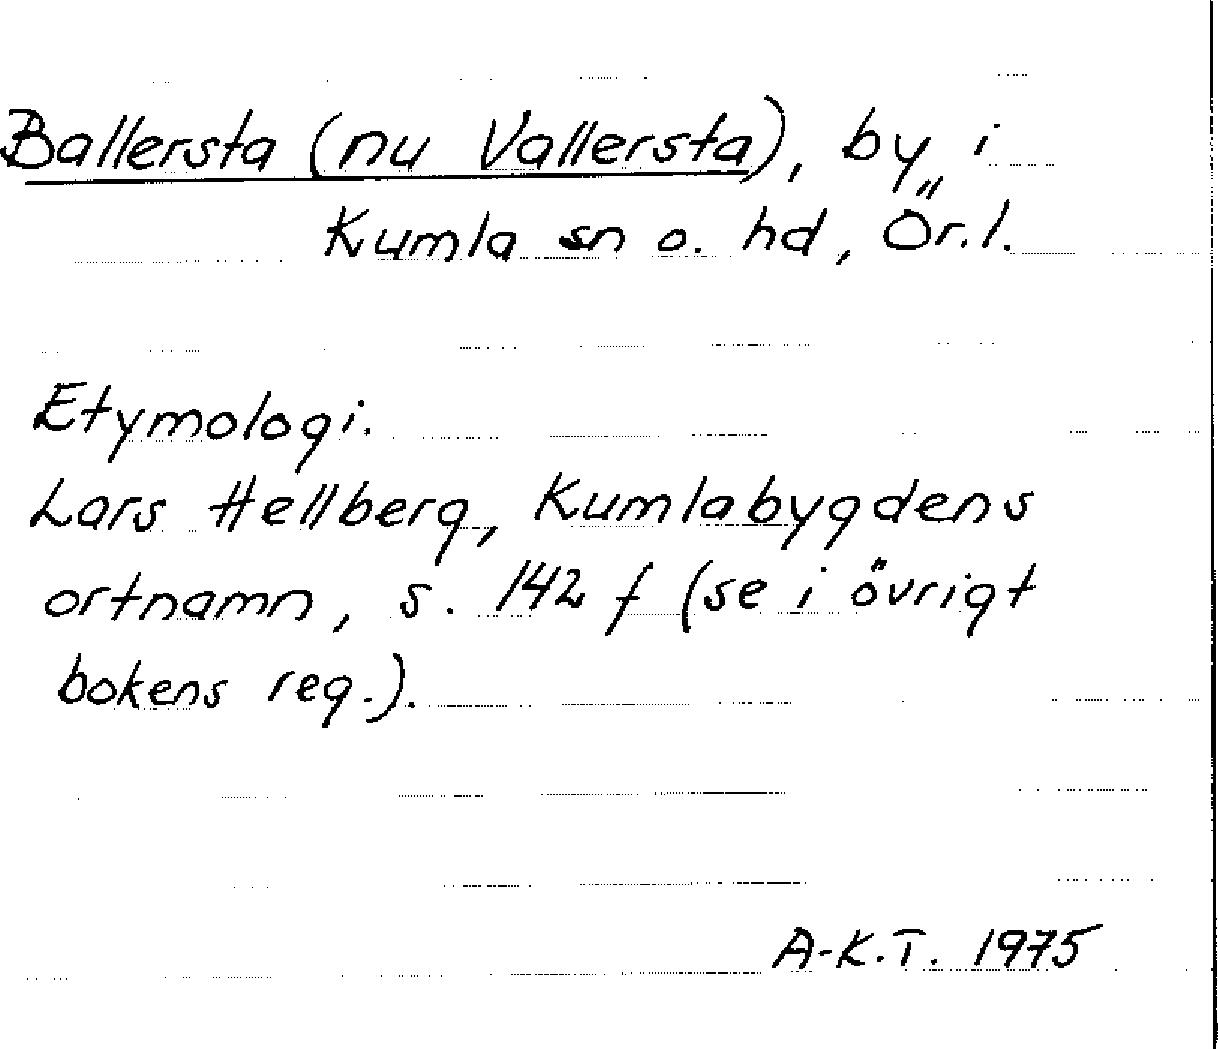 Ballersta (nu Vallersta), by i
Kumla sn o. hd, Ör.l.
Etymologi.
Lars Hellberg, Kumlabygdens
ortnamn, s. 142 f (se i övrigt
bokens reg.).
A-K.T. 1975